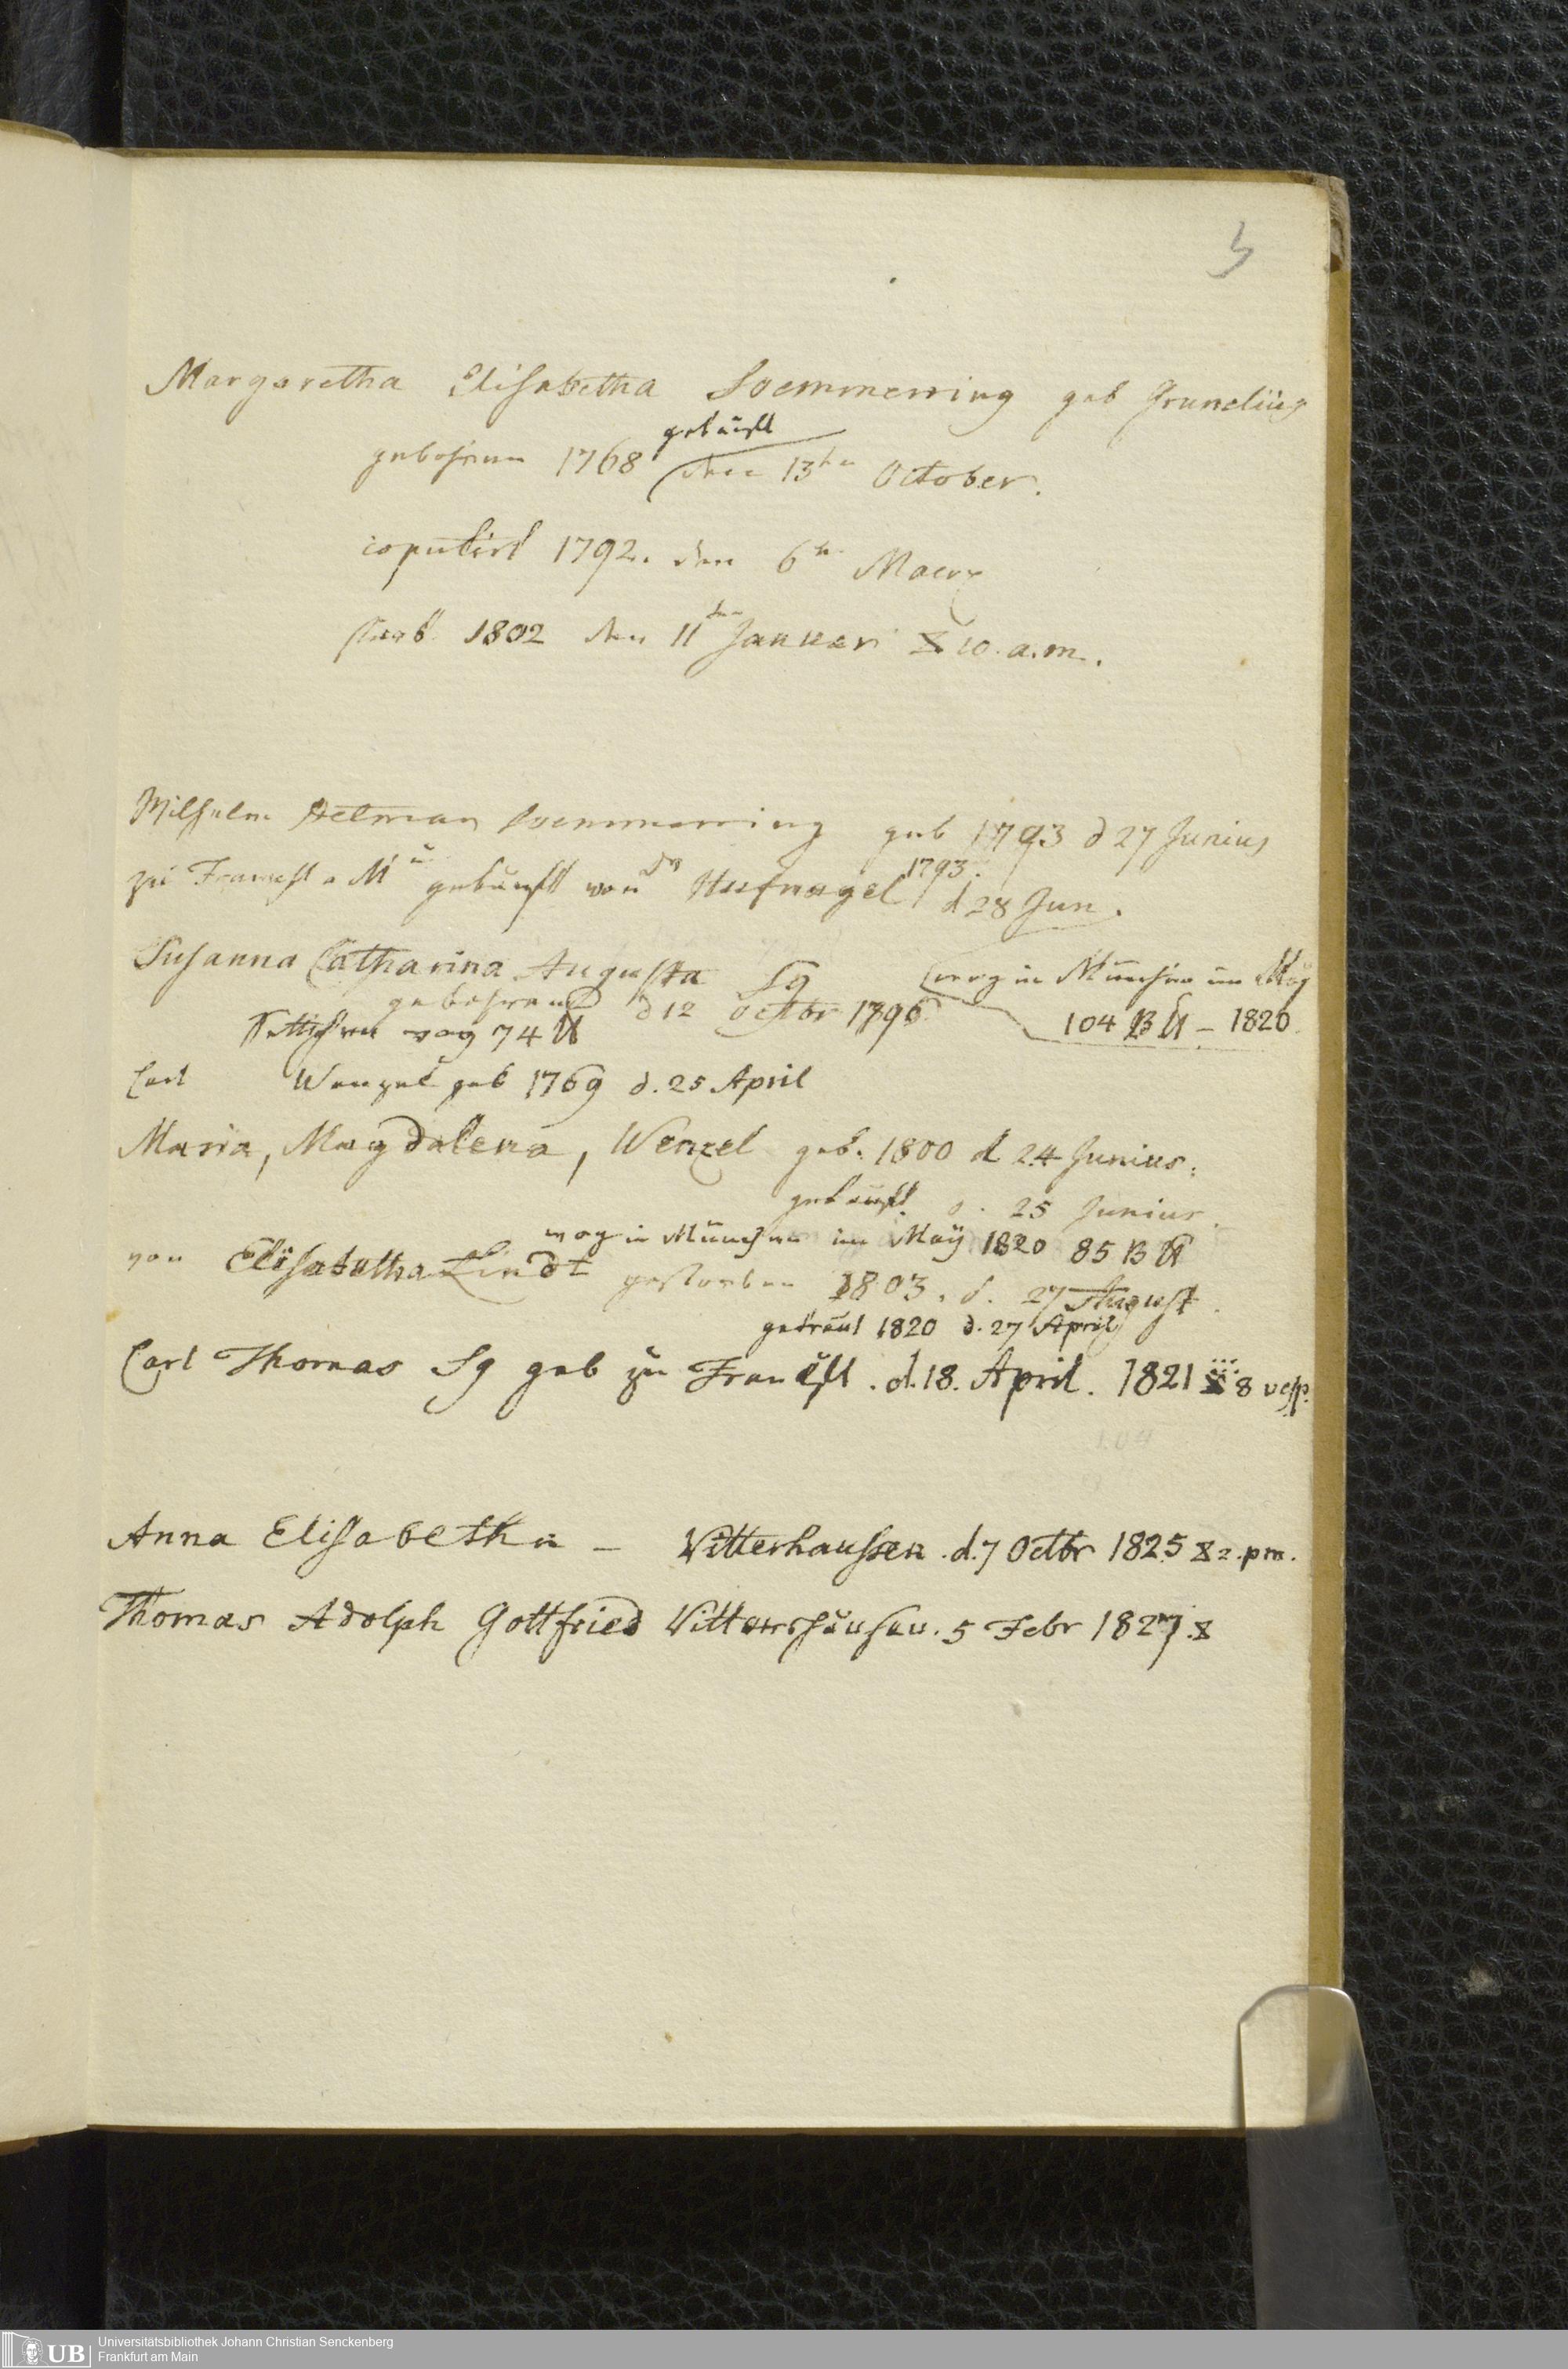 5
Margaretha Elisabetha Soemmerring geb Grunelius
getauft
gebohren 1768 den 13ten October.
copulirt 1792. den 6ten Maerz
starb 1802 den 11ten Januar 10. a.m.
Wilhelm Detmar Soemmerring geb 1793 d 27 Junius
zu Francft a M getauft von Dr Hufnagel 1793. d 28 Jun.
Susanna Catharina Augusta Sg wog in München im May
gebohren d 12 Octbr 1796 104 B ℔ – 1820.
wog 74 ℔
Carl Wenzel geb 1769 d. 25 April
Maria, Magdalena, Wenzel geb. 1800 d 24 Junius.
getauft d. 25 Junius.
wog in München im May 1820 85 B ℔
von Elisabetha Lindt gestorben 1803. d. 27 August.
getraut 1820 d. 27 April
Carl Thomas Sg geb zu Francft. d. 18. April. 1821 8 vesp.
Anna Elisabetha – Vitterhaussen. d. 7 Octbr 1825 2. pm.
Thomas Adolph Gottfried Vittershausen. 5 Febr 1827.
UB
Universitätsbibliothek Johann Christian Senckenberg
Frankfurt am Main